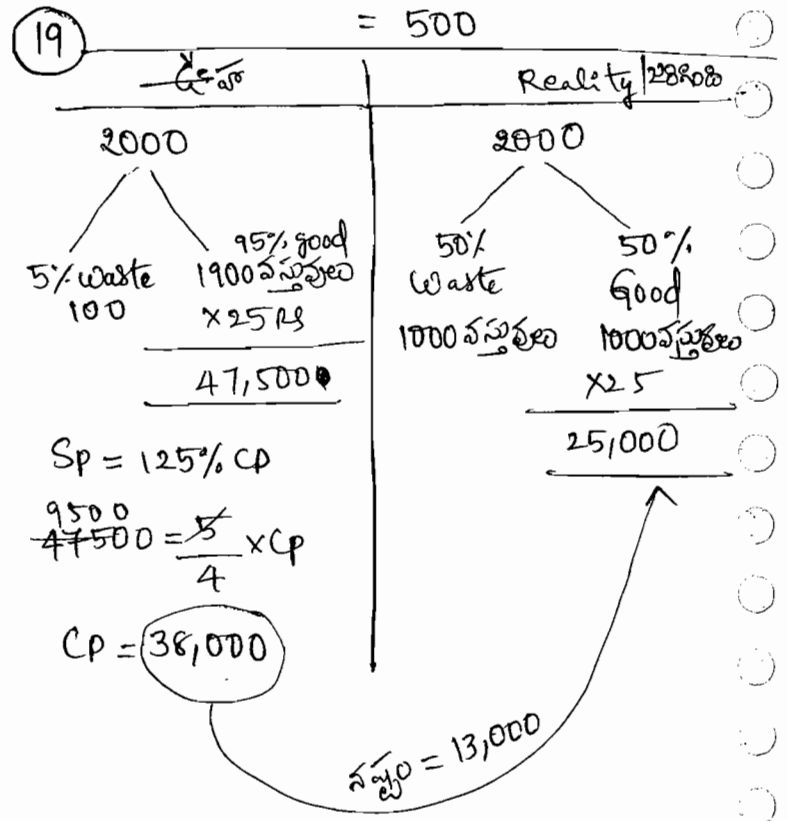 = 500
19
ఊహ
Reality | జరిగింది
2000
5% waste
100
95% good
1900 వస్తువులు
×25 Rs
47,500
Sp = 125% CP
9500
47500 = 5/4 × Cp
Cp = 38,000
2000
50%
Waste
1000 వస్తువులు
50%
Good
1000 వస్తువులు
×25
25,000
నష్టం = 13,000